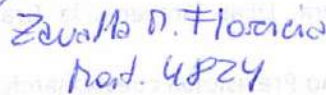 Zavalla M. Florencia
Mat. 4824